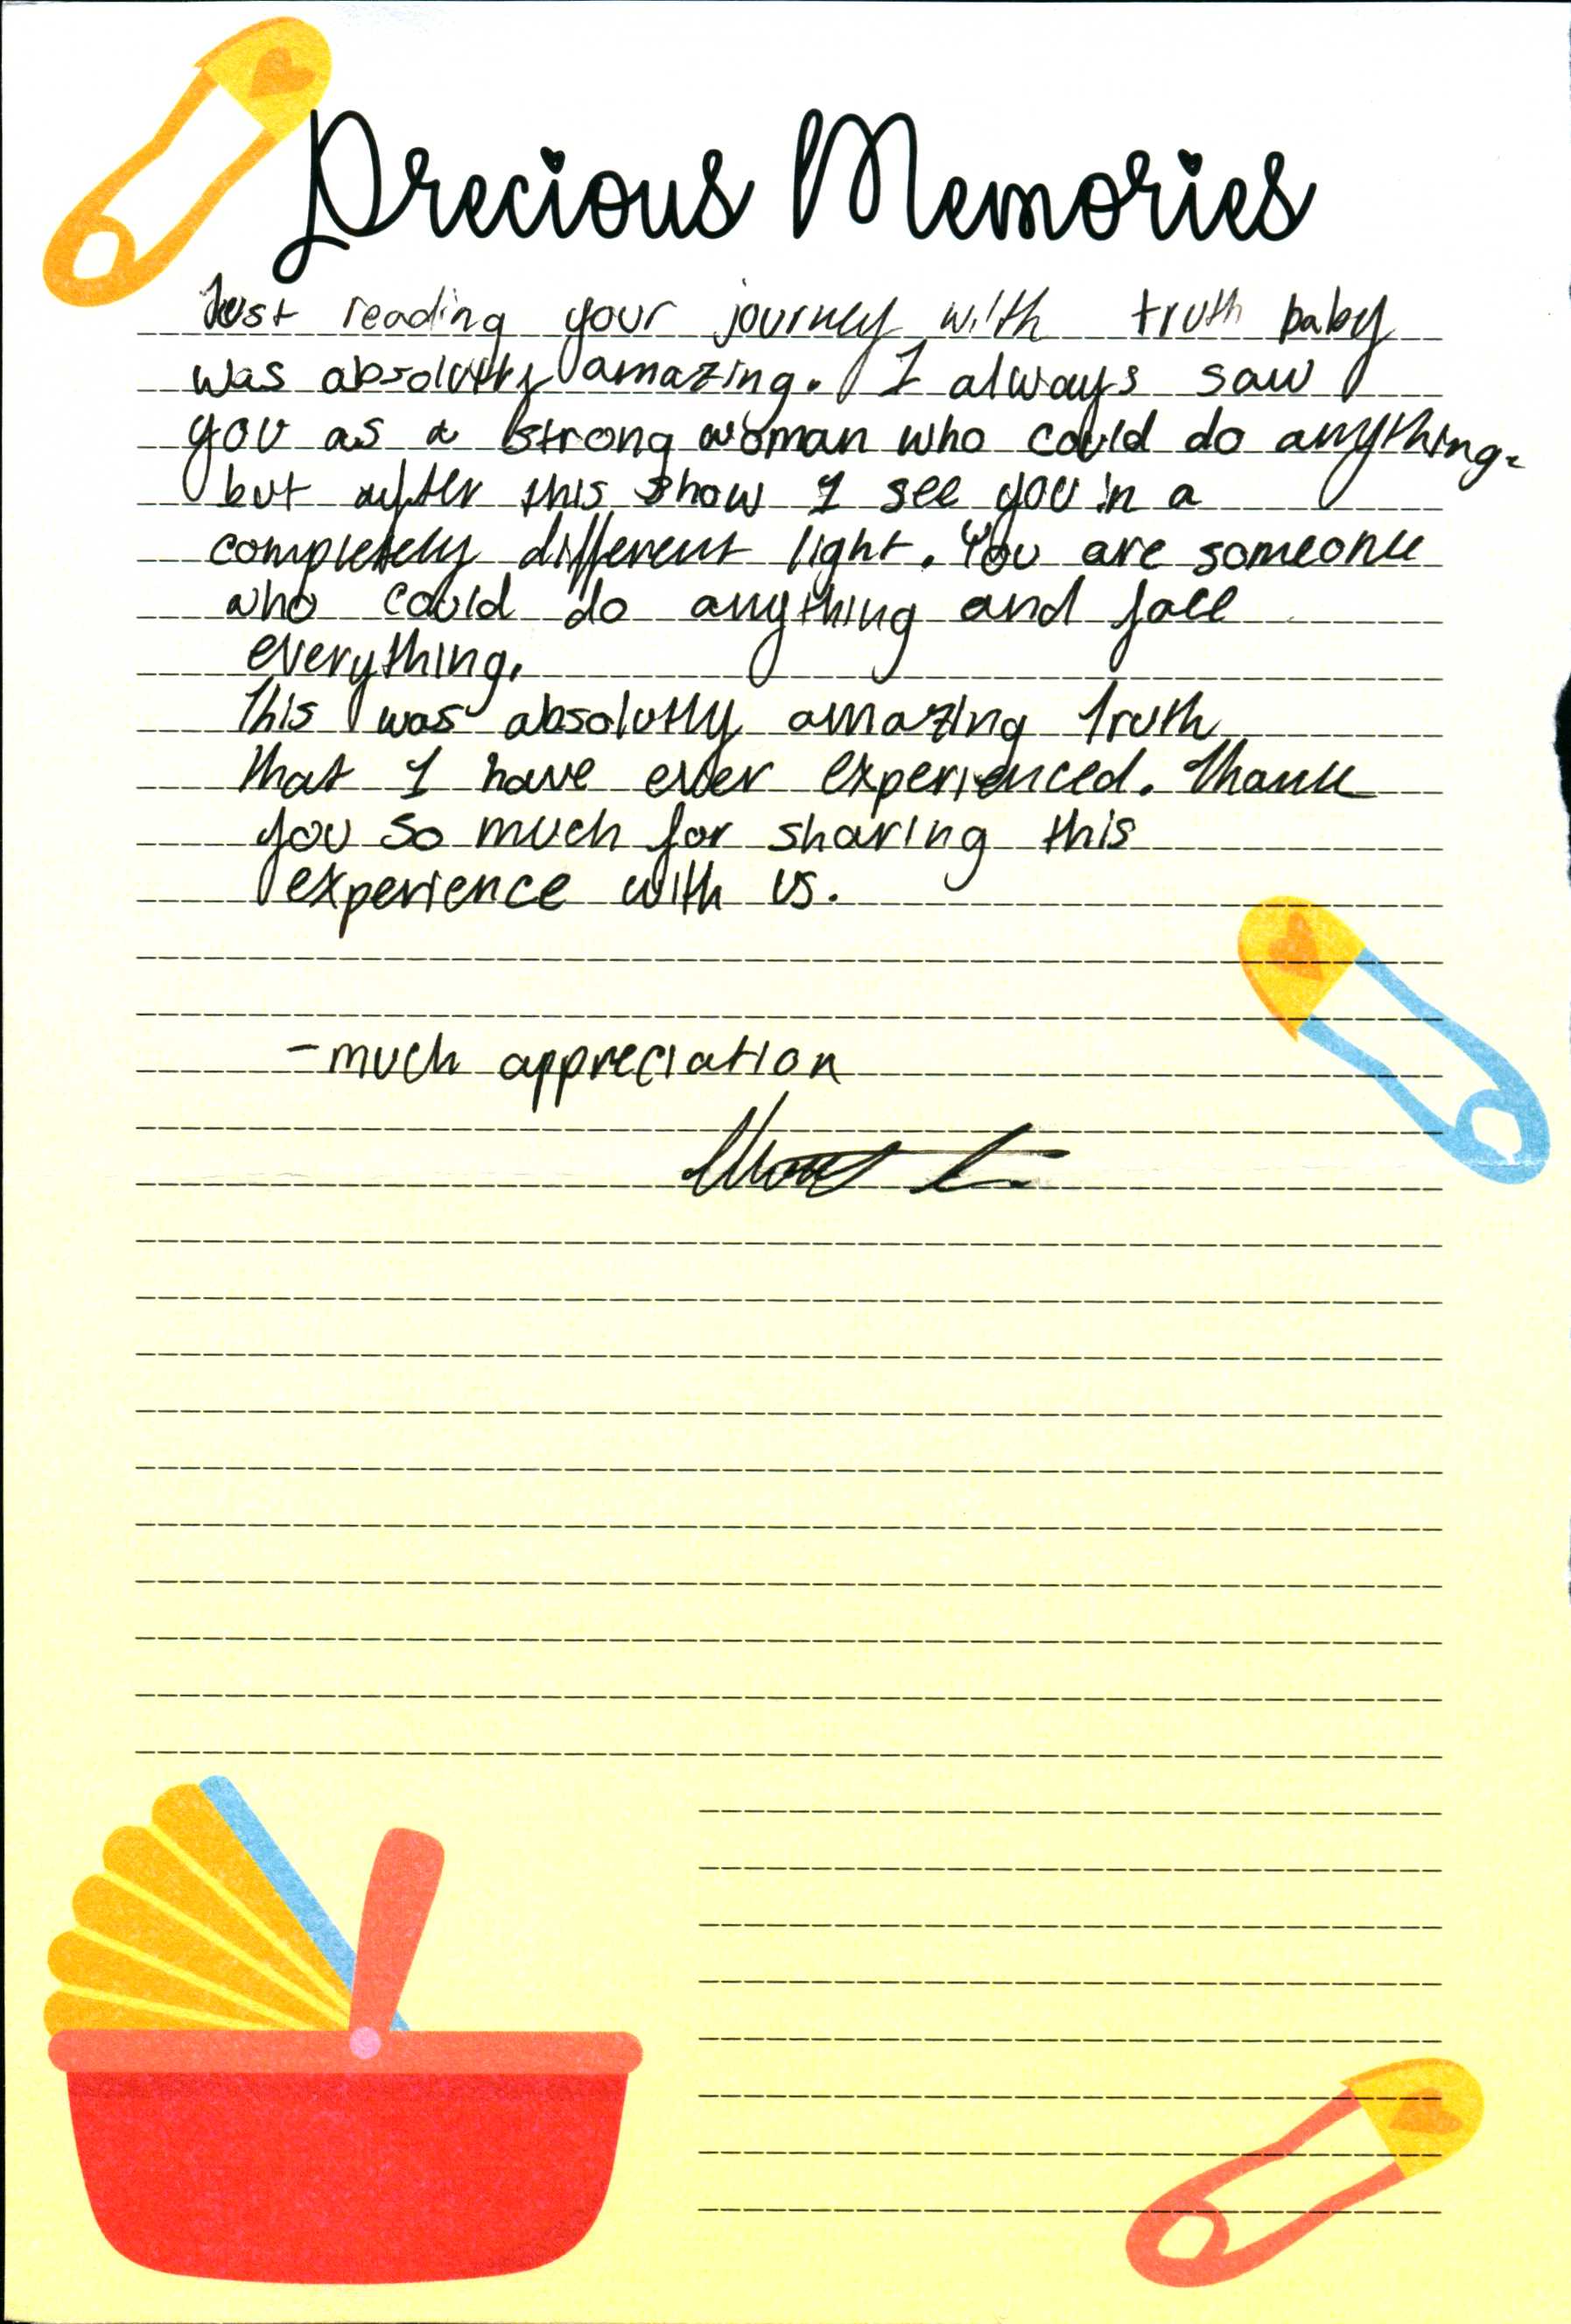 Precious Memories
Just reading your journey with truth baby
was absolutly amazing. I always saw
you as a strong woman who could do anything.
but after this show I see you in a
completely different light. You are someone
who could do anything and face
everything.
This was absolutly amazing truth
that I have ever experienced. Thank
you so much for sharing this
experience with us.
-much appreciation